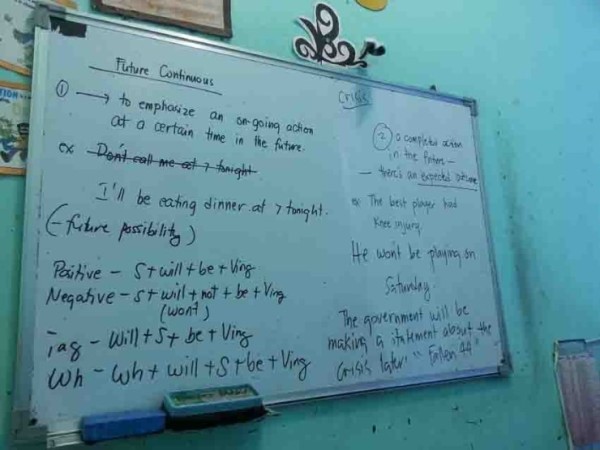 Future Continuous
① → to emphasize an on-going action
at a certain time in the future.
ex Don't call me at 7 tonight
I'll be eating dinner at 7 tonight.
(-future possibility)
Positive - S+will+be+Ving
Negative - S+will+not+be+Ving
(won't)
Tag - Will+S+be+Ving
Wh - Wh+will+S+be+Ving
Crisis
② a completed action
in the future -
- there's an expected outcome
ex The best player had
knee injury.
He won't be playing on
Saturday.
The government will be
making a statement about the
crisis later. "Fallen 44"